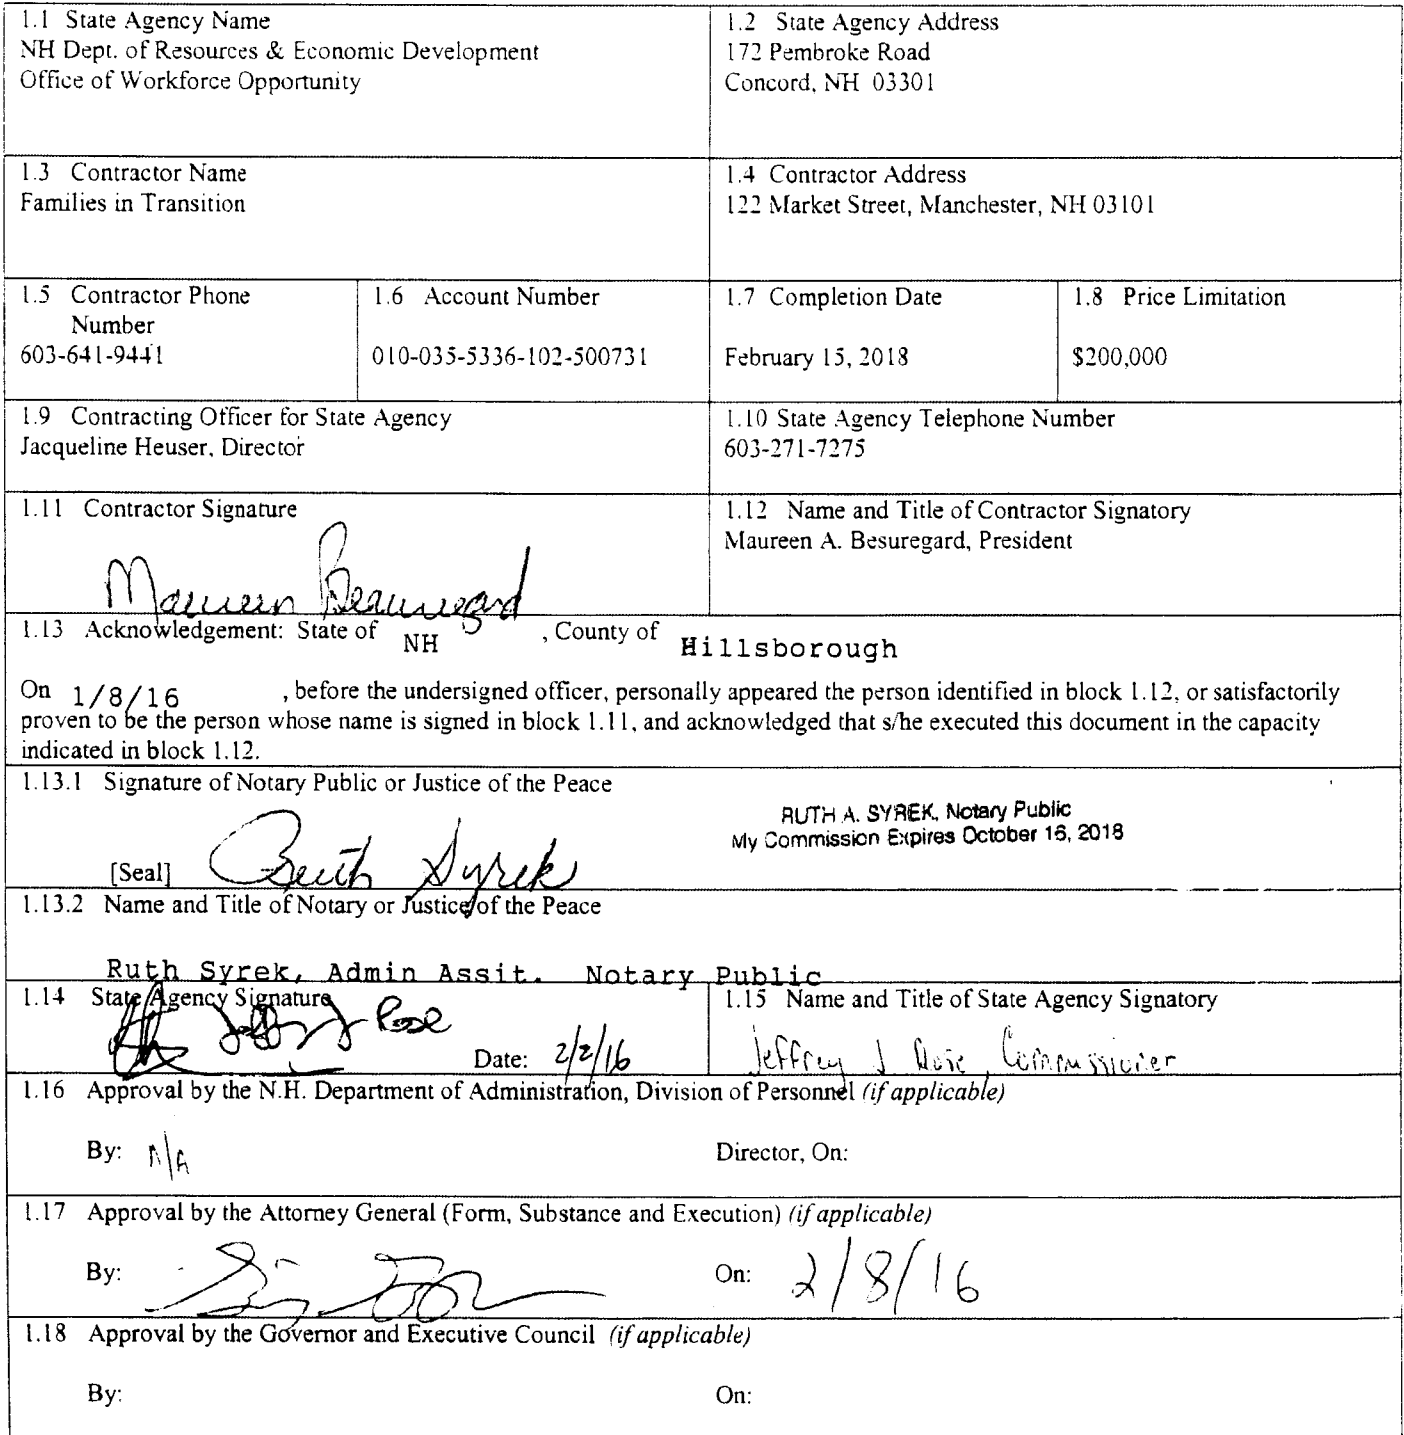 1.1 State Agency Name
NH Dept. of Resources & Economic Development
Office of Workforce Opportunity
1.2 State Agency Address
172 Pembroke Road
Concord, NH 03301
1.3 Contractor Name
Families in Transition
1.4 Contractor Address
122 Market Street, Manchester, NH 03101
1.5 Contractor Phone
Number
603-641-9441
1.6 Account Number
010-035-5336-102-500731
1.7 Completion Date
February 15, 2018
1.8 Price Limitation
$200,000
1.9 Contracting Officer for State Agency
Jacqueline Heuser, Director
1.10 State Agency Telephone Number
603-271-7275
1.11 Contractor Signature
Maureen Beauregard
1.12 Name and Title of Contractor Signatory
Maureen A. Besuregard, President
1.13 Acknowledgement: State of NH , County of Hillsborough
On 1/8/16 , before the undersigned officer, personally appeared the person identified in block 1.12, or satisfactorily
proven to be the person whose name is signed in block 1.11, and acknowledged that s/he executed this document in the capacity
indicated in block 1.12.
1.13.1 Signature of Notary Public or Justice of the Peace
RUTH A. SYREK, Notary Public
My Commission Expires October 16, 2018
[Seal] Ruth Syrek
1.13.2 Name and Title of Notary or Justice of the Peace
Ruth Syrek, Admin Assit. Notary Public
1.14 State Agency Signature
Jeffrey J Rose
Date: 2/2/16
1.15 Name and Title of State Agency Signatory
Jeffrey J Rose, Commissioner
1.16 Approval by the N.H. Department of Administration, Division of Personnel (if applicable)
By: N/A Director, On:
1.17 Approval by the Attorney General (Form, Substance and Execution) (if applicable)
By: On: 2/8/16
1.18 Approval by the Governor and Executive Council (if applicable)
By: On: